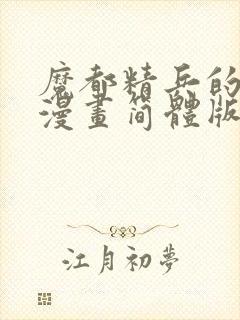 魔都精兵的
漫畫简體版
江月初夢